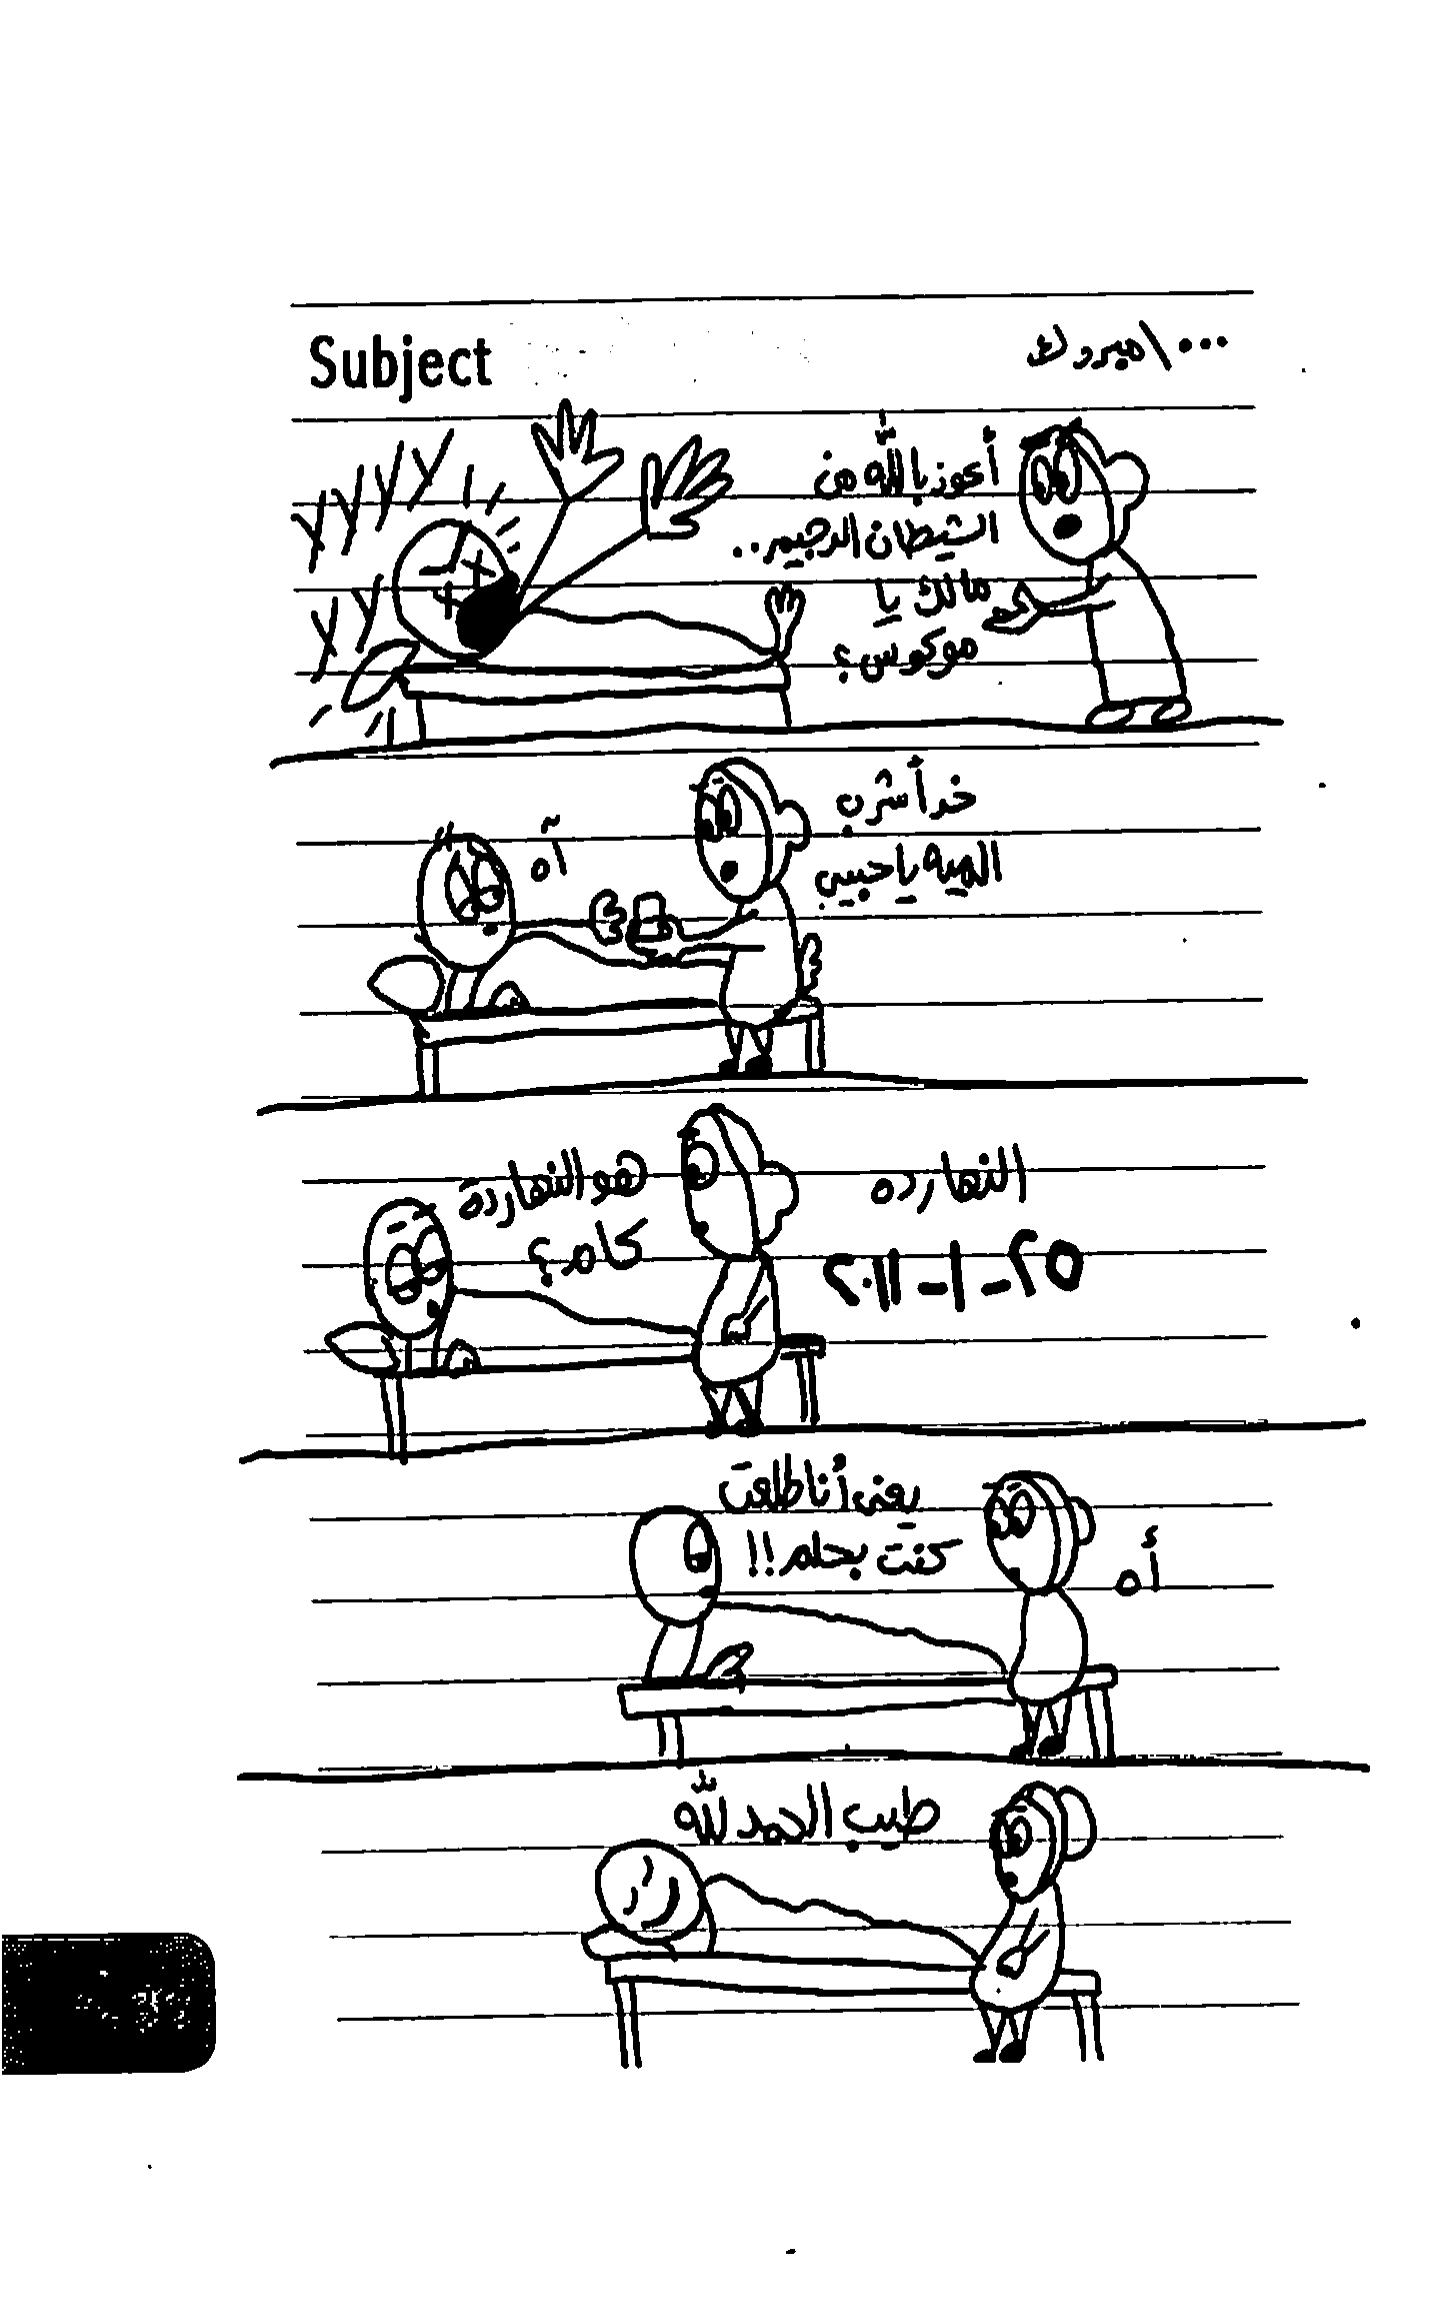 Subject
...\مبروك
أعوذ بالله من
الشيطان الرجيم..
مالك يا
موكوس؟
لا لا لا لا لا
لا لا
خد أشرب
المية يا حبيبي
آه
هو النهاردة
كام؟
النهارده
٢٥-١-٢٠١١
يعنى أنا طلعت
كنت بحلم!!
أه
طيب الحمد لله